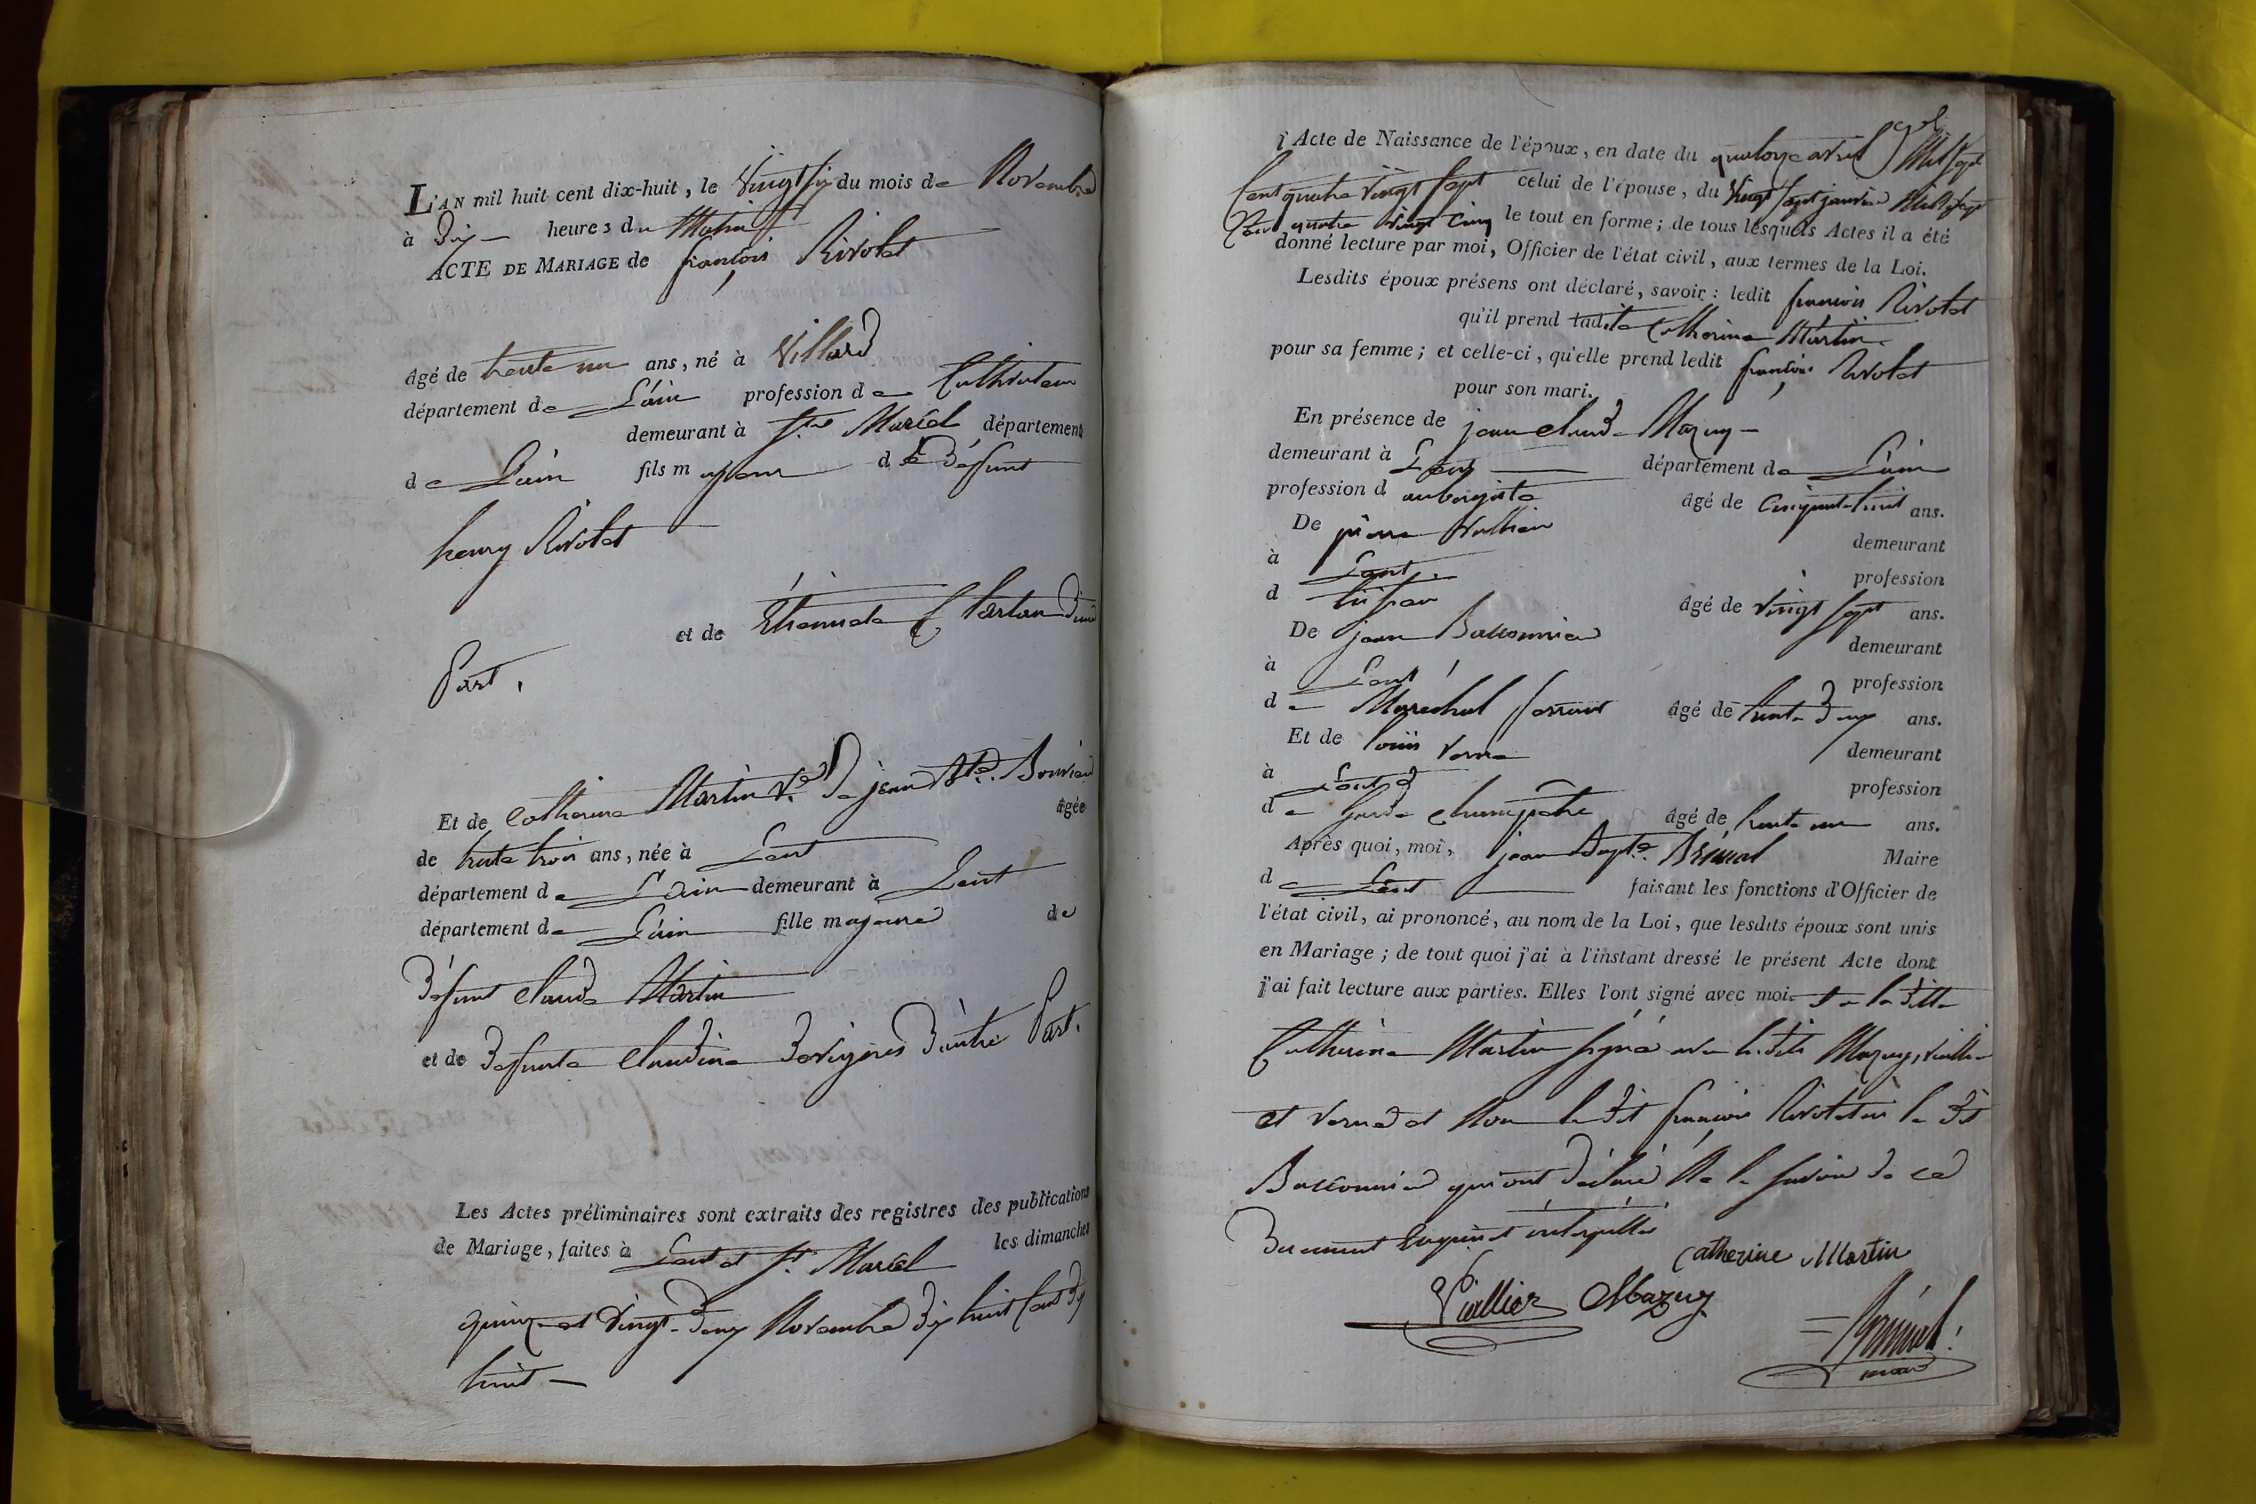 L'AN mil huit cent dix-huit, le Vingt six du mois de Novembre
à Dix heures du Matin
ACTE DE MARIAGE de françois Rivolet
âgé de trente un ans, né à Villard
département de L'ain profession de Cultivateur
demeurant à St Marcel département
de L'ain fils majeur de Défunt
henry Rivolet
et de Etiennete d'une
Part.
Et de Catherine Martin Ve de jean Bte Bouvier
âgée
de trente trois ans, née à Lent
département de L'ain demeurant à Lent
département de L'ain fille majeure de
Défunt claude Martin
et de Defunte claudine Devigneres D'autre Part.
Les Actes préliminaires sont extraits des registres des publications
de Mariage, faites à Lent et St Marcel les dimanches
quinze et vingt-deux Novembre dix huit cent dix
huit
l'Acte de Naissance de l'époux, en date du quatorze avril Mil sept
Cent quatre vingt sept celui de l'épouse, du vingt sept janvier Mil sept
Cent quatre vingt cinq le tout en forme; de tous lesquels Actes il a été
donné lecture par moi, Officier de l'état civil, aux termes de la Loi.
Lesdits époux présens ont déclaré, savoir: ledit françois Rivolet
qu'il prend ladite Catherine Martin
pour sa femme; et celle-ci, qu'elle prend ledit françois Rivolet
pour son mari.
En présence de jean claude Mazuy
demeurant à Lent département de L'ain
profession d aubergiste âgé de Cinquante huit ans.
De pierre Vullier demeurant
à Lent profession
d âgé de vingt sept ans.
De jean Bassonnier demeurant
à Lent profession
de Marechal ferrant âgé de trente deux ans.
Et de louis Verne demeurant
à Lent profession
de Garde champetre âgé de trente un ans.
Après quoi, moi, jean Bapte Maire
de Lent faisant les fonctions d'Officier de
l'état civil, ai prononcé, au nom de la Loi, que lesdits époux sont unis
en Mariage; de tout quoi j'ai à l'instant dressé le présent Acte dont
j'ai fait lecture aux parties. Elles l'ont signé avec moi. la ditte
Catherine Martin signé avec lesdits Mazuy, Vullier
et Verne et Non le dit françois Rivolet ni le dit
Bassonnier qui ont déclaré Ne le savoir de ce
Duement Enquis et interpellés
Catherine Martin
Vullier Mazuy
maire